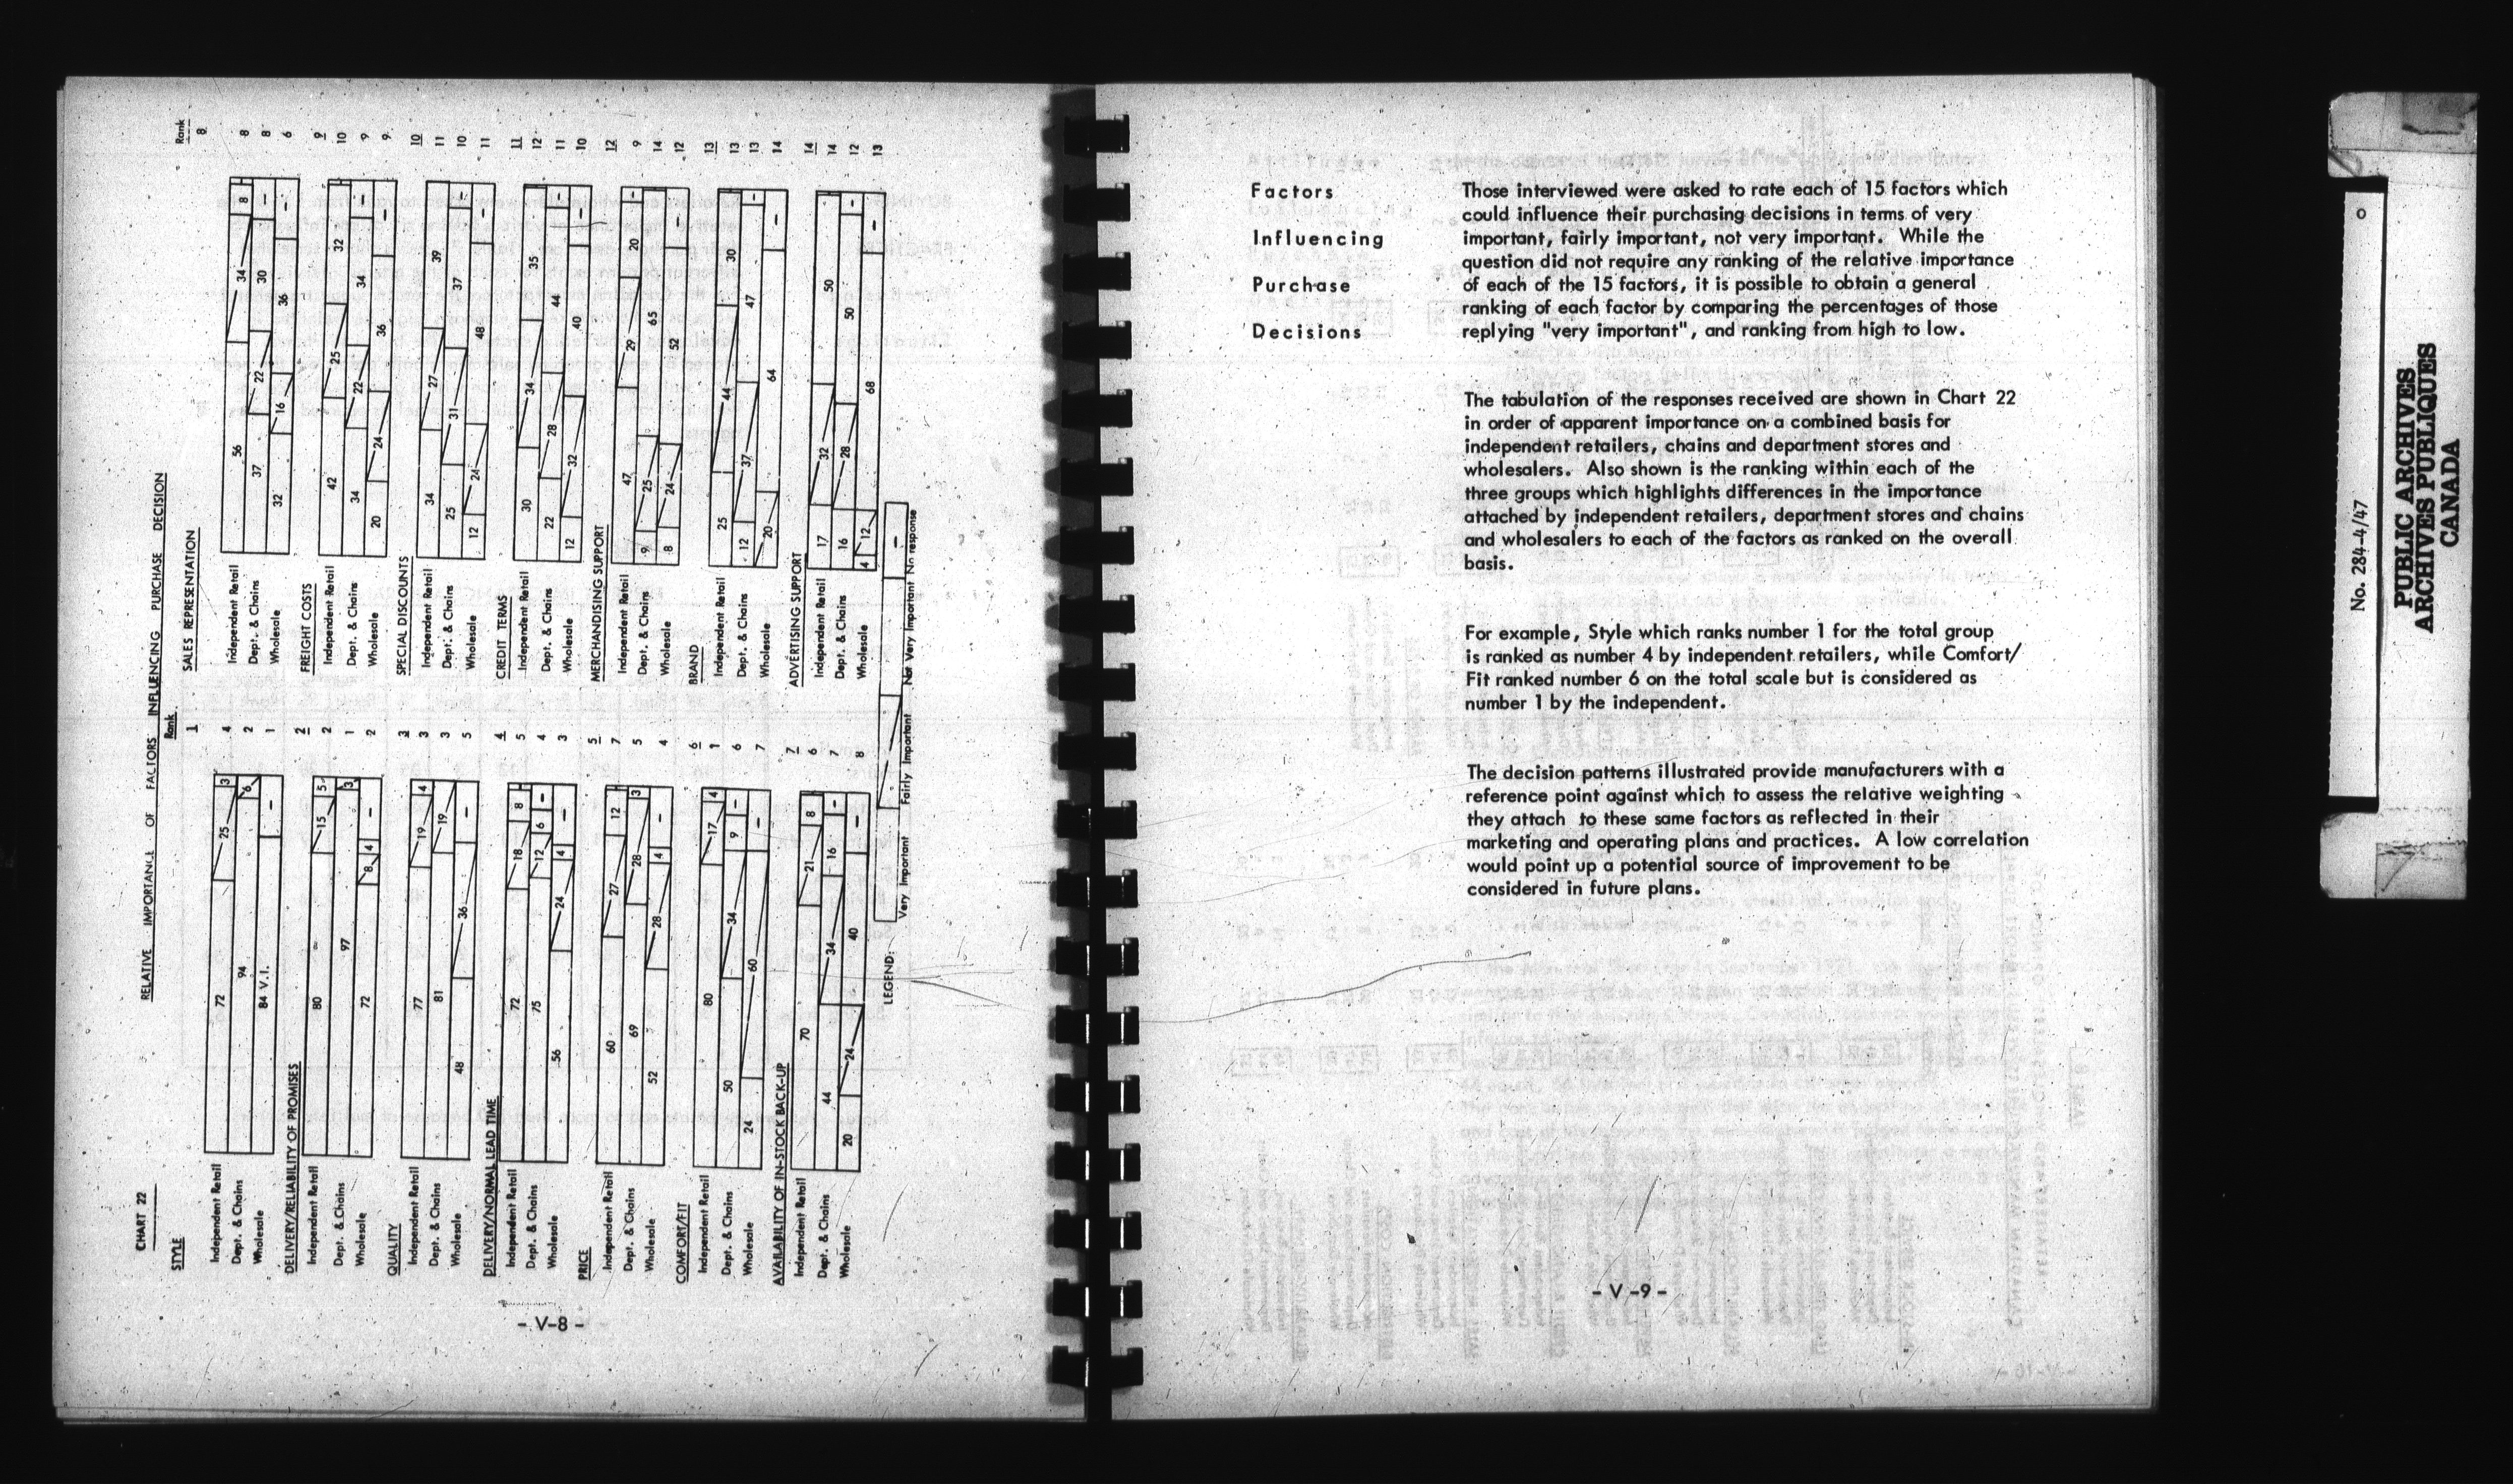 CHART 22
RELATIVE IMPORTANCE OF FACTORS INFLUENCING PURCHASE DECISION
Rank
STYLE 1
Independent Retail 72 25 3 4
Dept. & Chains 94 6 2
Wholesale 84 V.I. – 1
DELIVERY/RELIABILITY OF PROMISES 2
Independent Retail 80 15 5 2
Dept. & Chains 97 3 1
Wholesale 72 8 4 – 2
QUALITY 3
Independent Retail 77 19 4 3
Dept. & Chains 81 19 3
Wholesale 48 36 – 5
DELIVERY/NORMAL LEAD TIME 4
Independent Retail 72 18 8 5
Dept. & Chains 75 12 6 – 4
Wholesale 56 24 4 – 3
PRICE 5
Independent Retail 60 27 12 7
Dept. & Chains 69 28 3 5
Wholesale 52 28 4 – 4
COMFORT/FIT 6
Independent Retail 80 17 4 1
Dept. & Chains 50 34 9 – 6
Wholesale 24 60 – 7
AVAILABILITY OF IN-STOCK BACK-UP 7
Independent Retail 70 21 8 6
Dept. & Chains 44 34 16 – 7
Wholesale 20 24 40 – 8
Rank
SALES REPRESENTATION 8
Independent Retail 56 34 8 8
Dept. & Chains 37 22 30 – 8
Wholesale 32 16 36 – 6
FREIGHT COSTS 9
Independent Retail 42 25 32 10
Dept. & Chains 34 22 34 – 9
Wholesale 20 24 36 – 9
SPECIAL DISCOUNTS 10
Independent Retail 34 27 39 11
Dept. & Chains 25 31 37 – 10
Wholesale 12 24 48 – 11
CREDIT TERMS 11
Independent Retail 30 34 35 12
Dept. & Chains 22 28 44 – 11
Wholesale 12 32 40 – 10
MERCHANDISING SUPPORT 12
Independent Retail 47 29 20 – 9
Dept. & Chains 9 25 65 14
Wholesale 8 24 52 – 12
BRAND 13
Independent Retail 25 44 30 13
Dept. & Chains 12 37 47 – 13
Wholesale 20 64 – 14
ADVERTISING SUPPORT 14
Independent Retail 17 32 50 14
Dept. & Chains 16 28 50 – 12
Wholesale 4 12 68 – 13
LEGEND:
Very Important Fairly Important Not Very Important No response
- V-8 -
Factors
Influencing
Purchase
Decisions
Those interviewed were asked to rate each of 15 factors which
could influence their purchasing decisions in terms of very
important, fairly important, not very important. While the
question did not require any ranking of the relative importance
of each of the 15 factors, it is possible to obtain a general
ranking of each factor by comparing the percentages of those
replying "very important", and ranking from high to low.
The tabulation of the responses received are shown in Chart 22
in order of apparent importance on a combined basis for
independent retailers, chains and department stores and
wholesalers. Also shown is the ranking within each of the
three groups which highlights differences in the importance
attached by independent retailers, department stores and chains
and wholesalers to each of the factors as ranked on the overall
basis.
For example, Style which ranks number 1 for the total group
is ranked as number 4 by independent retailers, while Comfort/
Fit ranked number 6 on the total scale but is considered as
number 1 by the independent.
The decision patterns illustrated provide manufacturers with a
reference point against which to assess the relative weighting
they attach to these same factors as reflected in their
marketing and operating plans and practices. A low correlation
would point up a potential source of improvement to be
considered in future plans.
- V -9-
No. 284-4/47
PUBLIC ARCHIVES
ARCHIVES PUBLIQUES
CANADA